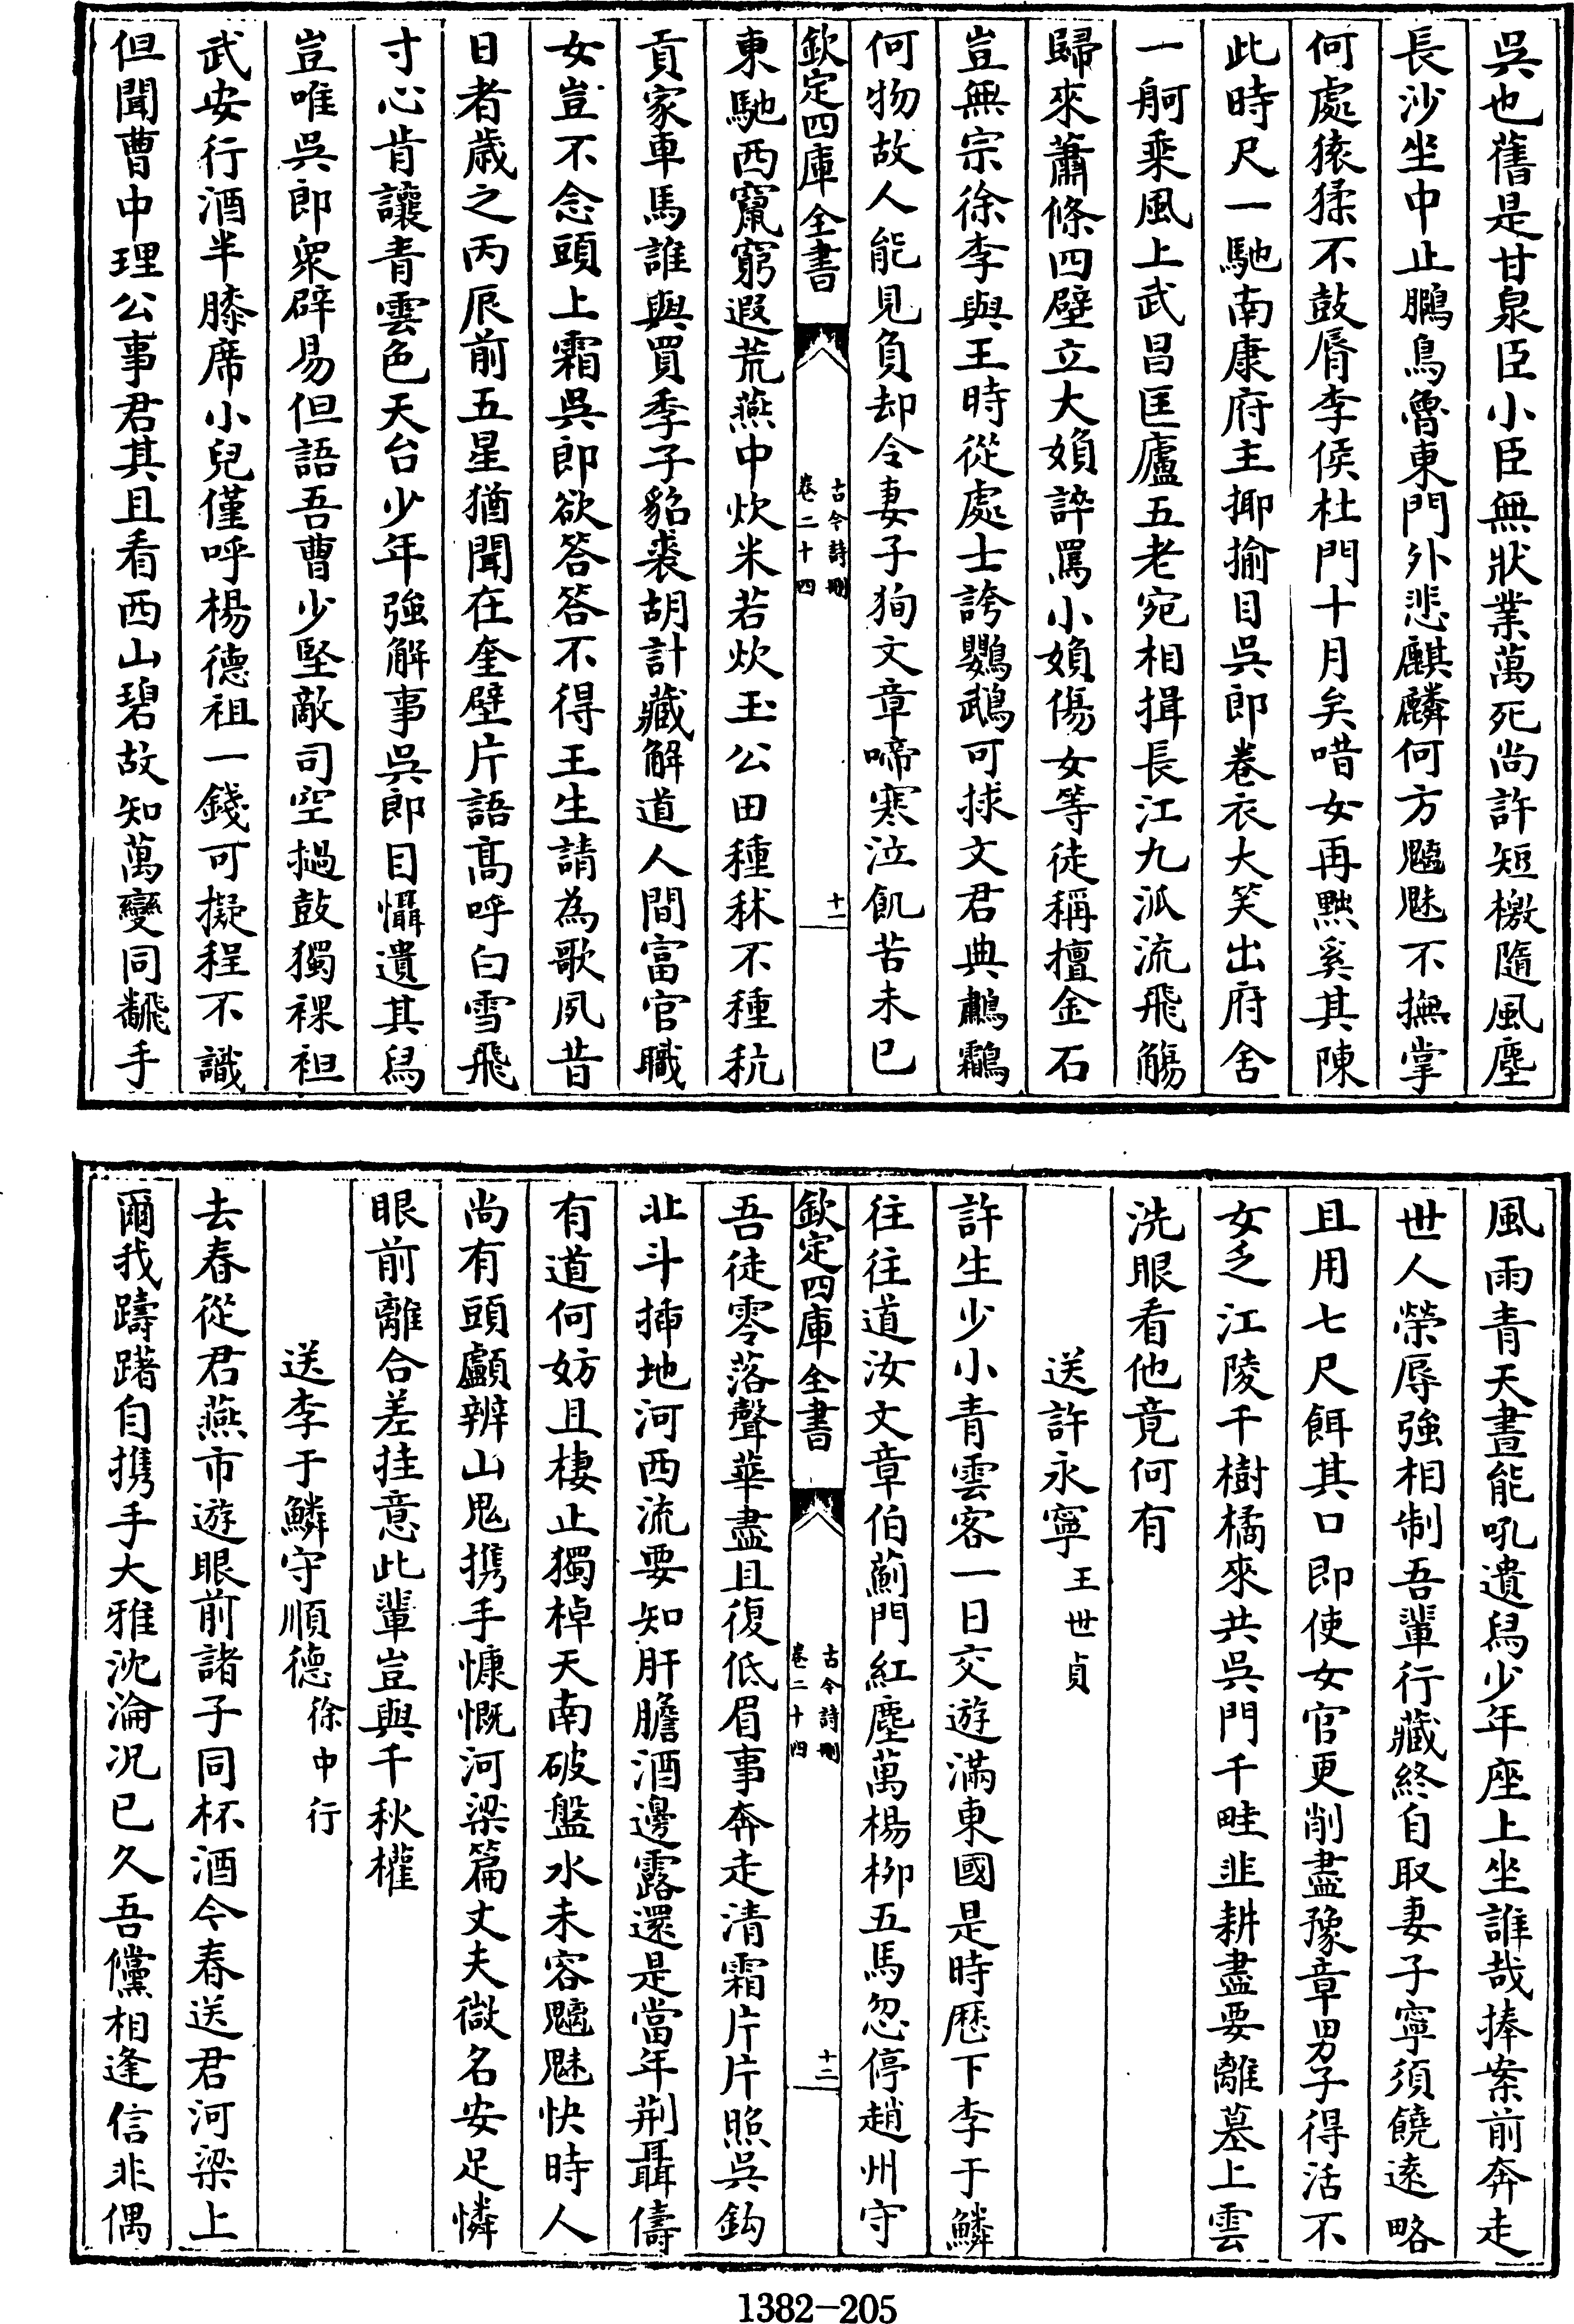 吳也舊是甘泉臣小臣無狀業萬死尚許短檄隨風塵
長沙坐中止鵩鳥魯東門外悲麒麟何方魑魅不撫掌
何處猿猱不鼓脣李侯杜門十月矣唶女再黜奚其陳
此時尺一馳南康府主揶揄目吳郎卷衣大笑出府舍
一舸乘風上武昌匡廬五老宛相揖長江九泒流飛觴
歸來蕭條四壁立大媍誶罵小媍傷女等徒稱擅金石
豈無宗徐李與王時從處士誇鸚鵡可捄文君典鷫鸘
何物故人能見負却令妻子狥文章啼寒泣飢苦未已
欽定四庫全書
古今詩刪
卷二十四
十一
東馳西竄窮遐荒燕中炊米若炊玉公田種秫不種秔
貢家車馬誰與買季子貂裘胡計藏解道人間富官職
女豈不念頭上霜吳郎欲答答不得王生請為歌夙昔
日者歲之丙辰前五星猶聞在奎壁片語髙呼白雪飛
寸心肯讓青雲色天台少年強解事吳郎目懾遺其舄
豈唯吳郎衆辟易但語吾曹少堅敵司空撾鼓獨裸袒
武安行酒半膝席小兒僅呼楊德祖一錢可擬程不識
但聞曹中理公事君其且看西山碧故知萬變同飜手
風雨青天晝能吼遺舄少年座上坐誰哉捧案前奔走
世人榮辱強相制吾輩行藏終自取妻子寧須饒遠略
且用七尺餌其口即使女官更削盡豫章男子得活不
女乏江陵千樹橘來共吳門千畦韭耕盡要離墓上雲
洗眼看他竟何有
送許永寧王世貞
許生少小青雲客一日交遊滿東國是時歷下李于鱗
往往道汝文章伯薊門紅塵萬楊栁五馬忽停趙州守
欽定四庫全書
古今詩刪
卷二十四
十二
吾徒零落聲華盡且復低眉事奔走清霜片片照吳鈎
北斗揷地河西流要知肝膽酒邊露還是當年荆聶儔
有道何妨且棲止獨棹天南破盤水未容魑魅快時人
尚有頭顱辨山鬼攜手慷慨河梁篇丈夫微名安足憐
眼前離合差挂意此輩豈與千秋權
送李于鱗守順德徐中行
去春從君燕市遊眼前諸子同杯酒今春送君河梁上
爾我躊躇自攜手大雅沈淪况已久吾儻相逢信非偶
1382-205